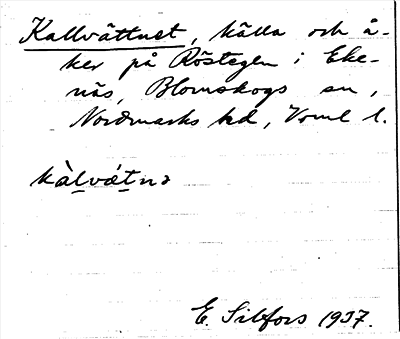 Kallvättnet, källa och å-
ker på Röstegen i Eke-
näs, Blomskogs sn,
Nordmarks hd, Vrml l.
kàlvǽtnə
E. Silfors 1937.